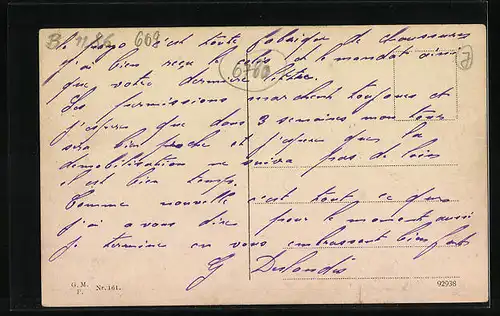 B 11/86 609
le pays c'est toute fabrique de chaussures
j'ai bien reçu le colis et le mandat ainsi
que votre dernière lettre.
6760
Les permissions marchent toujours et
j'espère que dans 3 semaines mon tour
sera bien proche et j'espère que la
démobilisation ne suivra pas de loin
il est bien temps.
Comme nouvelle c'est tout ce que
j'ai a vous dire pour le moment aussi
je termine en vous embrassant bien fort
G Deslandes
G. M. P. Nr. 161.
92938